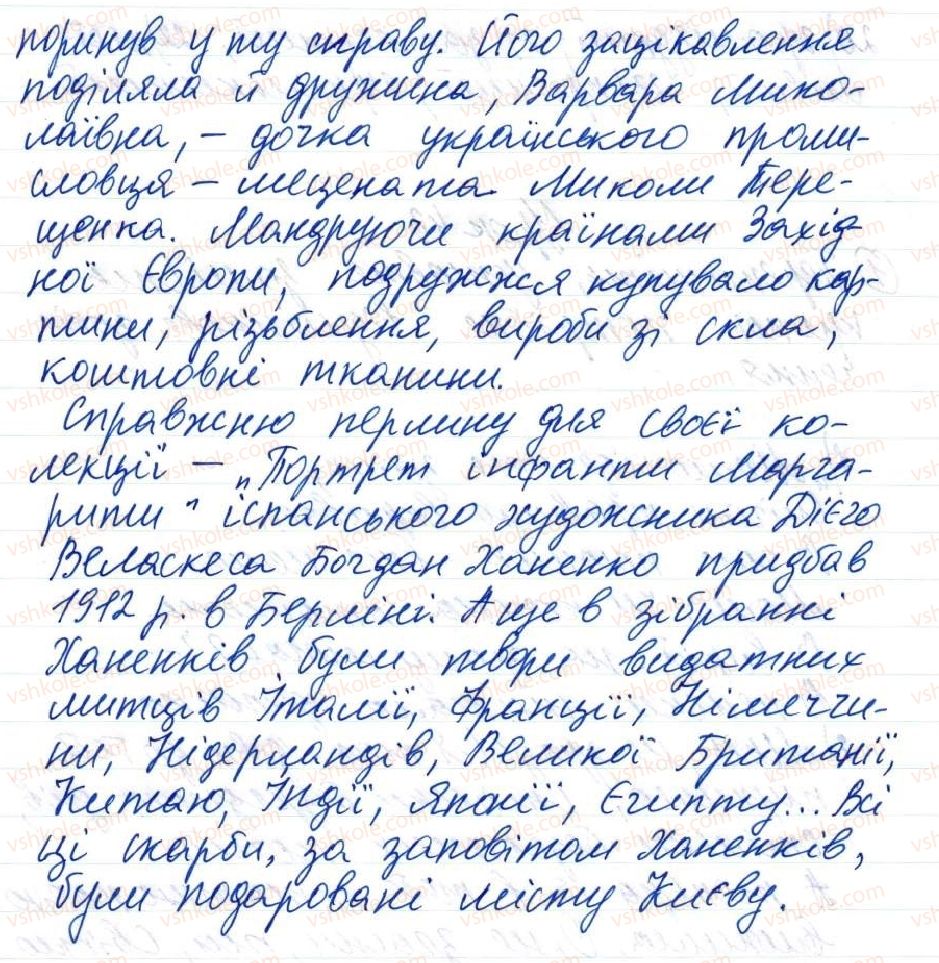 поринув у ту справу. Його зацікавлення
поділяла й дружина, Варвара Мико-
лаївна, – дочка українського проми-
словця – мецената Миколи Тере-
щенка. Мандруючи країнами Захід-
ної Європи, подружжя купувало кар-
тини, різьблення, вироби зі скла,
коштовні тканини.
Справжню перлину для своєї ко-
лекції – „Портрет інфанти Марга-
рити" іспанського художника Дієго
Веласкеса Богдан Ханенко придбав
1912 р. в Берліні. А ще в зібранні
Ханенків були твори видатних
митців Італії, Франції, Німеччи-
ни, Нідерландів, Великої Британії,
Китаю, Індії, Японії, Єгипту... Всі
ці скарби, за заповітом Ханенків,
були подаровані місту Києву.